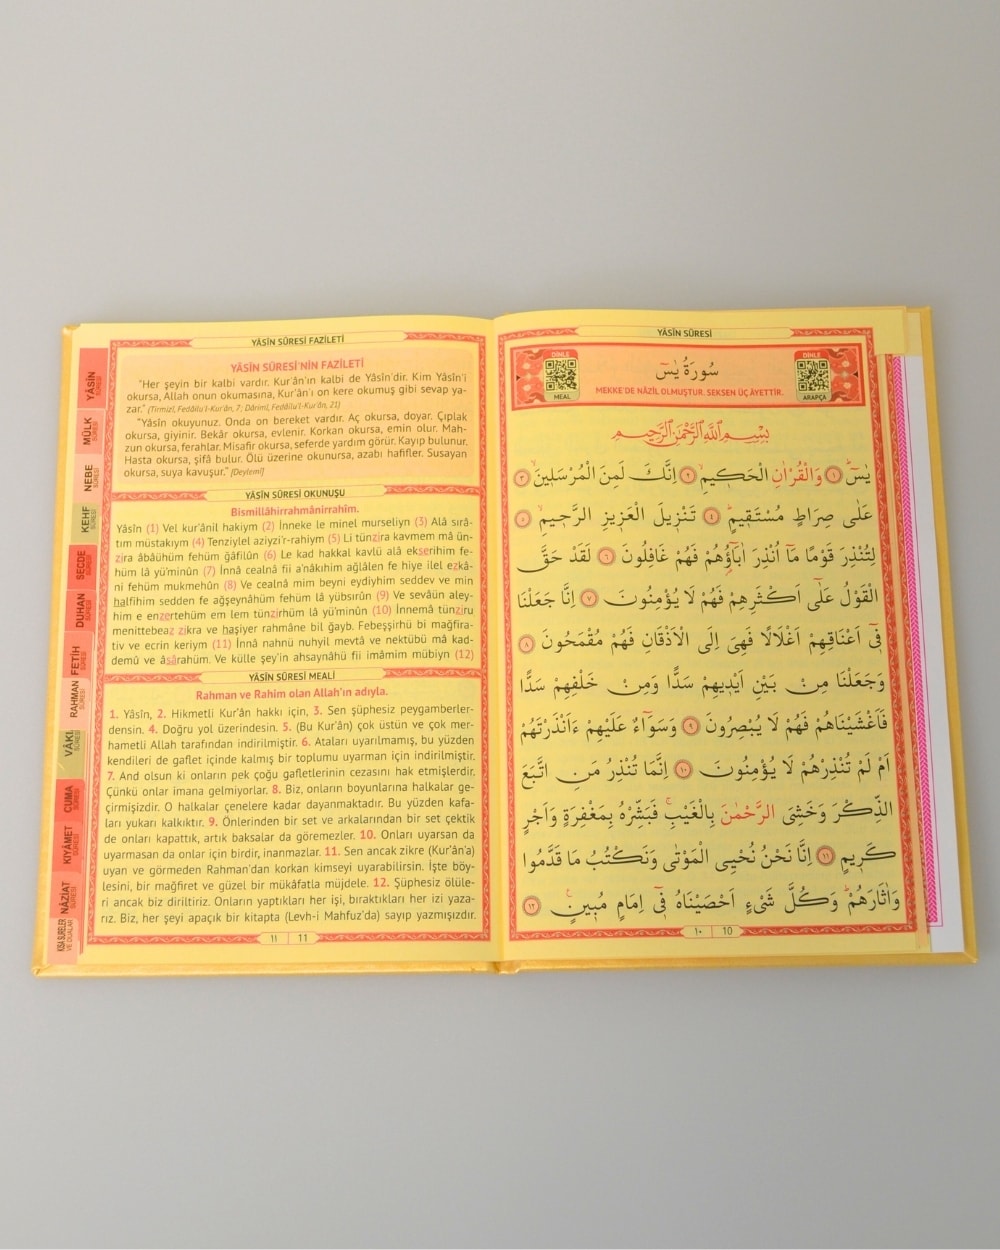 YÂSİN SÛRESİ
DİNLE
MEAL
سُورَةُ يٰسٓ
MEKKE'DE NÂZİL OLMUŞTUR. SEKSEN ÜÇ ÂYETTİR.
DİNLE
ARAPÇA
بِسْمِ اللّٰهِ الرَّحْمٰنِ الرَّحٖيمِ
يٰسٓۜ ﴿١﴾ وَالْقُرْاٰنِ الْحَكٖيمِۙ ﴿٢﴾ اِنَّكَ لَمِنَ الْمُرْسَلٖينَۙ ﴿٣﴾
عَلٰى صِرَاطٍ مُسْتَقٖيمٍۜ ﴿٤﴾ تَنْزٖيلَ الْعَزٖيزِ الرَّحٖيمِۙ ﴿٥﴾
لِتُنْذِرَ قَوْمًا مَٓا اُنْذِرَ اٰبَٓاؤُ۬هُمْ فَهُمْ غَافِلُونَ ﴿٦﴾ لَقَدْ حَقَّ
الْقَوْلُ عَلٰٓى اَكْثَرِهِمْ فَهُمْ لَا يُؤْمِنُونَ ﴿٧﴾ اِنَّا جَعَلْنَا
فٖٓي اَعْنَاقِهِمْ اَغْلَالًا فَهِيَ اِلَى الْاَذْقَانِ فَهُمْ مُقْمَحُونَ ﴿٨﴾
وَجَعَلْنَا مِنْ بَيْنِ اَيْدٖيهِمْ سَدًّا وَمِنْ خَلْفِهِمْ سَدًّا
فَاَغْشَيْنَاهُمْ فَهُمْ لَا يُبْصِرُونَ ﴿٩﴾ وَسَوَٓاءٌ عَلَيْهِمْ ءَاَنْذَرْتَهُمْ
اَمْ لَمْ تُنْذِرْهُمْ لَا يُؤْمِنُونَ ﴿١٠﴾ اِنَّمَا تُنْذِرُ مَنِ اتَّبَعَ
الذِّكْرَ وَخَشِيَ الرَّحْمٰنَ بِالْغَيْبِۚ فَبَشِّرْهُ بِمَغْفِرَةٍ وَاَجْرٍ
كَرٖيمٍ ﴿١١﴾ اِنَّا نَحْنُ نُحْيِي الْمَوْتٰى وَنَكْتُبُ مَا قَدَّمُوا
وَاٰثَارَهُمْۜ وَكُلَّ شَيْءٍ اَحْصَيْنَاهُ فٖٓي اِمَامٍ مُبٖينٍ۟ ﴿١٢﴾
١٠ 10
YÂSİN SÛRESİ FAZİLETİ
YÂSÎN SÛRESİ'NİN FAZİLETİ
"Her şeyin bir kalbi vardır. Kur'ân'ın kalbi de Yâsîn'dir. Kim Yâsîn'i
okursa, Allah onun okumasına, Kur'ân'ı on kere okumuş gibi sevap ya-
zar." (Tirmizî, Fedâilu'l-Kur'ân, 7; Dârimî, Fedâilu'l-Kur'ân, 21)
"Yâsîn okuyunuz. Onda on bereket vardır. Aç okursa, doyar. Çıplak
okursa, giyinir. Bekâr okursa, evlenir. Korkan okursa, emin olur. Mah-
zun okursa, ferahlar. Misafir okursa, seferde yardım görür. Kayıp bulunur.
Hasta okursa, şifâ bulur. Ölü üzerine okunursa, azabı hafifler. Susayan
okursa, suya kavuşur." (Deylemî)
YÂSÎN SÛRESİ OKUNUŞU
Bismillâhirrahmânirrahîm.
Yâsîn (1) Vel kur'ânil hakiym (2) İnneke le minel murseliyn (3) Alâ sırâ-
tım müstakıym (4) Tenziylel aziyzi'r-rahiym (5) Li tünzira kavmem mâ ün-
zira âbâühüm fehüm ğâfilûn (6) Le kad hakkal kavlü alâ ekserihim fe-
hüm lâ yü'minûn (7) İnnâ cealnâ fii a'nâkıhim ağlâlen fe hiye ilel ezkâ-
ni fehüm mukmehûn (8) Ve cealnâ mim beyni eydiyhim seddev ve min
halfihim sedden fe ağşeynâhüm fehüm lâ yübsırûn (9) Ve sevâün aley-
him e enzertehüm em lem tünzirhüm lâ yü'minûn (10) İnnemâ tünziru
menittebeaz zikra ve haşiyer rahmâne bil ğayb. Febeşşirhü bi mağfira-
tiv ve ecrin keriym (11) İnnâ nahnü nuhyil mevtâ ve nektübü mâ kad-
demû ve âsârahüm. Ve külle şey'in ahsaynâhü fii imâmim mübiyn (12)
YÂSÎN SÛRESİ MEALİ
Rahman ve Rahim olan Allah'ın adıyla.
1. Yâsîn, 2. Hikmetli Kur'ân hakkı için, 3. Sen şüphesiz peygamberler-
densin. 4. Doğru yol üzerindesin. 5. (Bu Kur'ân) çok üstün ve çok mer-
hametli Allah tarafından indirilmiştir. 6. Ataları uyarılmamış, bu yüzden
kendileri de gaflet içinde kalmış bir toplumu uyarman için indirilmiştir.
7. And olsun ki onların pek çoğu gafletlerinin cezasını hak etmişlerdir.
Çünkü onlar imana gelmiyorlar. 8. Biz, onların boyunlarına halkalar ge-
çirmişizdir. O halkalar çenelere kadar dayanmaktadır. Bu yüzden kafa-
ları yukarı kalkıktır. 9. Önlerinden bir set ve arkalarından bir set çektik
de onları kapattık, artık baksalar da göremezler. 10. Onları uyarsan da
uyarmasan da onlar için birdir, inanmazlar. 11. Sen ancak zikre (Kur'ân'a)
uyan ve görmeden Rahman'dan korkan kimseyi uyarabilirsin. İşte böy-
lesini, bir mağfiret ve güzel bir mükâfatla müjdele. 12. Şüphesiz ölüle-
ri ancak biz diriltiriz. Onların yaptıkları her işi, bıraktıkları her izi yaza-
rız. Biz, her şeyi apaçık bir kitapta (Levh-i Mahfuz'da) sayıp yazmışızdır.
١١ 11
YÂSİN SÛRESİ
MÜLK SÛRESİ
NEBE SÛRESİ
KEHF SÛRESİ
SECDE SÛRESİ
DUHAN SÛRESİ
FETİH SÛRESİ
RAHMAN SÛRESİ
VÂKI SÛRESİ
CUMA SÛRESİ
KIYÂMET SÛRESİ
NÂZİAT SÛRESİ
KISA SURELER VE DUALAR